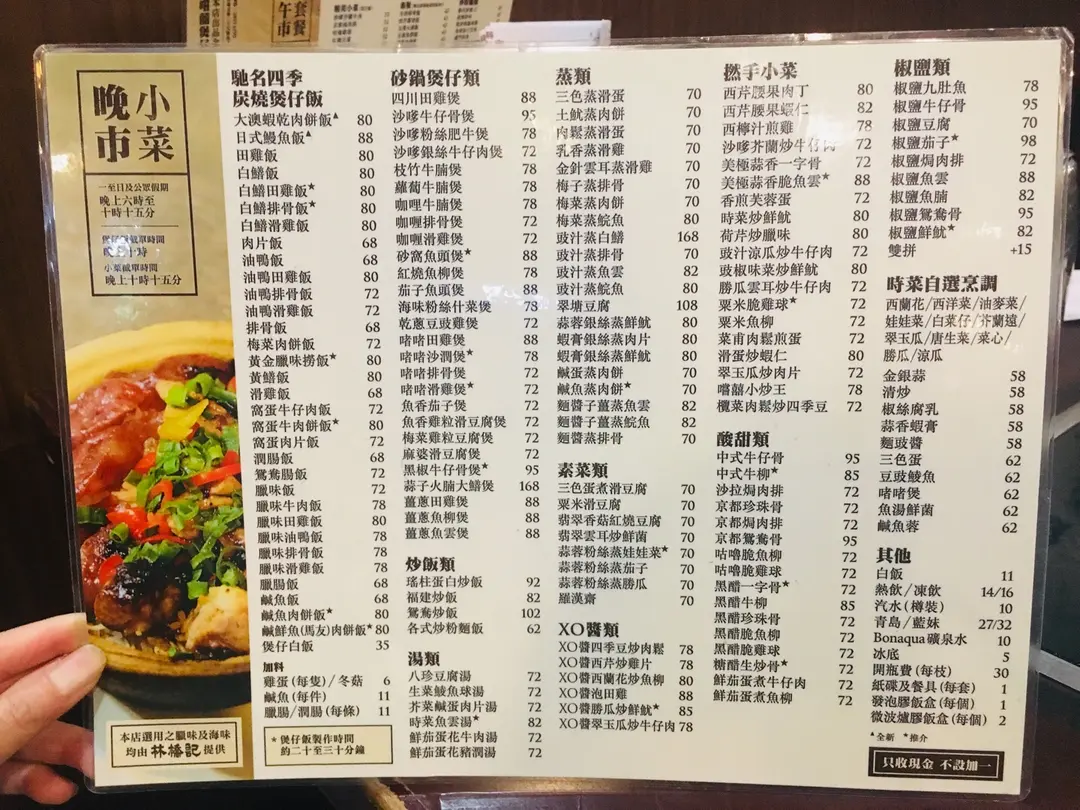 午市
套餐
晚市
小菜
一至日及公眾假期
晚上六時至
十時十五分
小菜截單時間
晚上十時十五分
本店選用之臘味及海味
均由 林檢記 提供
馳名四季
炭燒煲仔飯
大澳蝦乾肉餅飯▲ 80
日式鰻魚飯▲ 88
田雞飯 80
白鱔飯 80
白鱔田雞飯★ 80
白鱔排骨飯★ 80
白鱔滑雞飯 80
肉片飯 68
油鴨飯 68
油鴨田雞飯 80
油鴨排骨飯 72
油鴨滑雞飯 72
排骨飯 68
梅菜肉餅飯 72
黃金臘味撈飯★ 80
黃鱔飯 80
滑雞飯 68
窩蛋牛仔肉飯 72
窩蛋牛肉餅飯★ 80
窩蛋肉片飯 72
潤腸飯 68
鴛鴦腸飯 72
臘味飯 72
臘味牛肉飯 78
臘味田雞飯 80
臘味油鴨飯 78
臘味排骨飯 78
臘味滑雞飯 78
臘腸飯 68
鹹魚飯 68
鹹魚肉餅飯★ 80
鹹鮮魚(馬友)肉餅飯★ 80
煲仔白飯 35
加料
雞蛋(每隻)/冬菇 6
鹹魚(每件) 11
臘腸/潤腸(每條) 11
★煲仔飯製作時間
約二十至三十分鐘
砂鍋煲仔類
四川田雞煲 88
沙嗲牛仔骨煲 95
沙嗲粉絲肥牛煲 78
沙嗲銀絲牛仔肉煲 72
枝竹牛腩煲 78
蘿蔔牛腩煲 78
咖哩牛腩煲 78
咖喱排骨煲 72
咖喱滑雞煲 72
砂窩魚頭煲★ 88
紅燒魚柳煲 78
茄子魚頭煲 88
海味粉絲什菜煲 78
乾蔥豆豉雞煲 72
啫啫田雞煲 88
啫啫沙潤煲★ 78
啫啫排骨煲 72
啫啫滑雞煲★ 72
魚香茄子煲 72
魚香雞粒滑豆腐煲 72
梅菜雞粒豆腐煲 72
麻婆滑豆腐煲 72
黑椒牛仔骨煲★ 95
蒜子火腩大鱔煲 168
薑蔥田雞煲 88
薑蔥魚柳煲 88
薑蔥魚雲煲 88
炒飯類
瑤柱蛋白炒飯 92
福建炒飯 82
鴛鴦炒飯 102
各式炒粉麵飯 62
湯類
八珍豆腐湯 72
生菜鯪魚球湯 72
芥菜鹹蛋肉片湯 72
時菜魚雲湯★ 82
鮮茄蛋花牛肉湯 72
鮮茄蛋花豬潤湯 72
蒸類
三色蒸滑蛋 70
土魷蒸肉餅 70
肉鬆蒸滑蛋 70
乳香蒸滑雞 70
金針雲耳蒸滑雞 70
梅子蒸排骨 70
梅菜蒸肉餅 70
梅菜蒸鯇魚 80
豉汁蒸白鱔 168
豉汁蒸排骨 70
豉汁蒸魚雲 82
豉汁蒸鯇魚 80
翠塘豆腐 108
蒜蓉銀絲蒸鮮魷 80
蝦膏銀絲蒸肉片 80
蝦膏銀絲蒸鮮魷 80
鹹蛋蒸肉餅 70
鹹魚蒸肉餅★ 70
麵醬子薑蒸魚雲 82
麵醬子薑蒸鯇魚 82
麵醬蒸排骨 70
素菜類
三色蛋煮滑豆腐 70
粟米滑豆腐 70
翡翠香菇紅燒豆腐 70
翡翠雲耳炒鮮菌 70
蒜蓉粉絲蒸娃娃菜★ 70
蒜蓉粉絲蒸茄子 70
蒜蓉粉絲蒸勝瓜 70
羅漢齋 70
XO醬類
XO醬四季豆炒肉鬆 78
XO醬西芹炒雞片 78
XO醬西蘭花炒魚柳 80
XO醬泡田雞 88
XO醬勝瓜炒鮮魷★ 85
XO醬翠玉瓜炒牛仔肉 78
撚手小菜
西芹腰果肉丁 80
西芹腰果蝦仁 82
西檸汁煎雞 78
沙嗲芥蘭炒牛仔肉 72
美極蒜香一字骨 72
美極蒜香脆魚雲★ 88
香煎芙蓉蛋 72
時菜炒鮮魷 80
荷芹炒臘味 80
豉汁涼瓜炒牛仔肉 72
豉椒味菜炒鮮魷 80
勝瓜雲耳炒牛仔肉 72
粟米脆雞球★ 72
粟米魚柳 72
菜甫肉鬆煎蛋 72
滑蛋炒蝦仁 80
翠玉瓜炒肉片 72
嚐囍小炒王 78
欖菜肉鬆炒四季豆 72
酸甜類
中式牛仔骨 95
中式牛柳★ 85
沙拉焗肉排 72
京都珍珠骨 72
京都焗肉排 72
京都鴛鴦骨 95
咕嚕脆魚柳 72
咕嚕脆雞球 72
黑醋一字骨★ 72
黑醋牛柳 85
黑醋珍珠骨 72
黑醋脆魚柳 72
黑醋脆雞球 72
糖醋生炒骨★ 72
鮮茄蛋煮牛仔肉 72
鮮茄蛋煮魚柳 72
椒鹽類
椒鹽九肚魚 78
椒鹽牛仔骨 95
椒鹽豆腐 70
椒鹽茄子★ 98
椒鹽焗肉排 72
椒鹽魚雲 88
椒鹽魚腩 82
椒鹽鴛鴦骨 95
椒鹽鮮魷★ 82
雙拼 +15
時菜自選烹調
西蘭花/西洋菜/油麥菜/
娃娃菜/白菜仔/芥蘭遠/
翠玉瓜/唐生菜/菜心/
勝瓜/涼瓜
金銀蒜 58
清炒 58
椒絲腐乳 58
蒜香蝦膏 58
麵豉醬 58
三色蛋 62
豆豉鯪魚 62
啫啫煲 62
魚湯鮮菌 62
鹹魚蓉 62
其他
白飯 11
熱飲/凍飲 14/16
汽水(樽裝) 10
青島/藍妹 27/32
Bonaqua礦泉水 10
冰底 5
開瓶費(每枝) 30
紙碟及餐具(每套) 1
發泡膠飯盒(每個) 1
微波爐膠飯盒(每個) 2
▲全新 ★推介
只收現金 不設加一